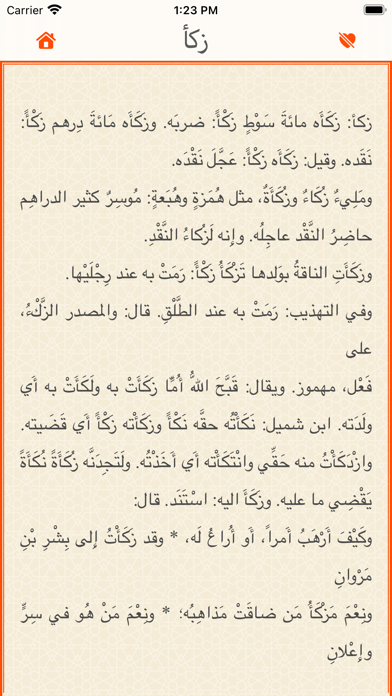 Carrier 1:23 PM
زكأ
زكأ: زَكَأَه مائةَ سَوْطٍ زَكْأً: ضربَه. وزَكَأَه مَائةَ دِرهم زَكْأً:
نَقَده. وقيل: زَكَأَه زَكْأً: عَجَّلَ نَقْدَه.
ومَلِيءٌ زُكَاءٌ وزُكَأَةٌ، مثل هُمَزةٍ وهُبَعةٍ: مُوسِرٌ كثير الدراهِم
حاضِرُ النَّقْد عاجِلُه. وإِنه لَزُكاءُ النَّقْدِ.
وزَكَأَتِ الناقةُ بوَلدها تَزْكَأُ زَكْأً: رَمَتْ به عند رِجْلَيْها.
وفي التهذيب: رَمَتْ به عند الطَّلْقِ. قال: والمصدر الزَّكْءُ،
على
فَعْل، مهموز. ويقال: قَبَّحَ اللّهُ أُمًّا زَكَأَتْ به ولَكَأَتْ به أَي
ولَدَته. ابن شميل: نَكَأْتُه حقَّه نَكْأً وزَكَأْته زَكْأً أَي قَضَيته.
وازْدَكَأْتُ منه حَقِّي وانْتَكَأْته أَي أَخَذْتُه. ولَتَجِدَنَّه زُكَأَةً نُكَأَةً
يَقْضِي ما عليه. وزكَأَ اليه: اسْتَنَد. قال:
وكَيْفَ أَرْهَبُ أَمراً، أَو أُراعُ لَه، * وقد زكَأْتُ إِلى بِشْرِ بْنِ
مَرْوانِ
ونِعْمَ مَزْكَأُ مَن ضاقَتْ مَذاهِبُه؛ * ونِعْمَ مَنْ هُو في سِرٍّ
وإِعْلانِ